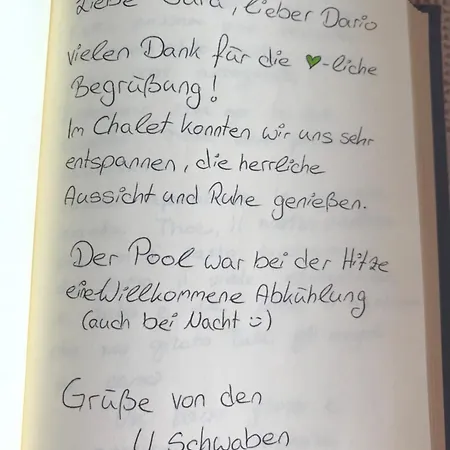 Liebe Sara, lieber Dario
vielen Dank für die ♥-liche
Begrüßung!
Im Chalet konnten wir uns sehr
entspannen, die herrliche
Aussicht und Ruhe genießen.
Der Pool war bei der Hitze
eine Willkommene Abkühlung
(auch bei Nacht ☺)
Grüße von den
Schwaben